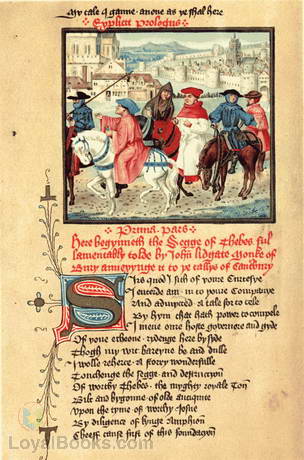 My tale I ganne anone as ye shal here
Explicit Prologus
Prima Pars
Here begynneth the Segge of Thebes ful
lamentably tolde by John lidgate Monke of
Bury anneyynge it to ye tallys of Canterbury
Sirs quod I sith of youre curtesye
I entrede am in to youre Companye
And admytted a tale for to telle
By hym that hath power to compelle
I mene oure hoste governere and gyde
Of youre echone ridenge here by side
Thogh my wit bareyne be and dulle
I wolle reherce a story wonderfulle
Touchenge the segge and destruccyon
Of worthy Thebes the myghty royale Ton
Bilt and begonne of olde antiquite
Upon the tyme of worthy Josue
By diligence of kynge Amphion
Cheef cause first of this foundacyon
LoyalBooks.com